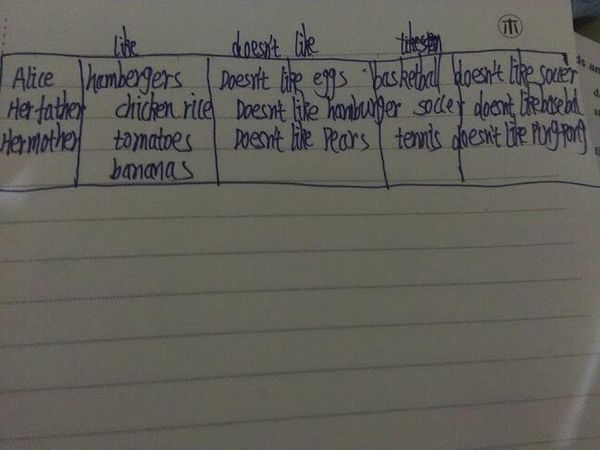 like doesn't like
Alice hambergers Doesn't like eggs basketball doesn't like soccer
Her father chicken rice Doesn't like hamburger soccer doesn't like
Her mother tomatoes Doesn't like Pears tennis doesn't like Ping-Pong
bananas